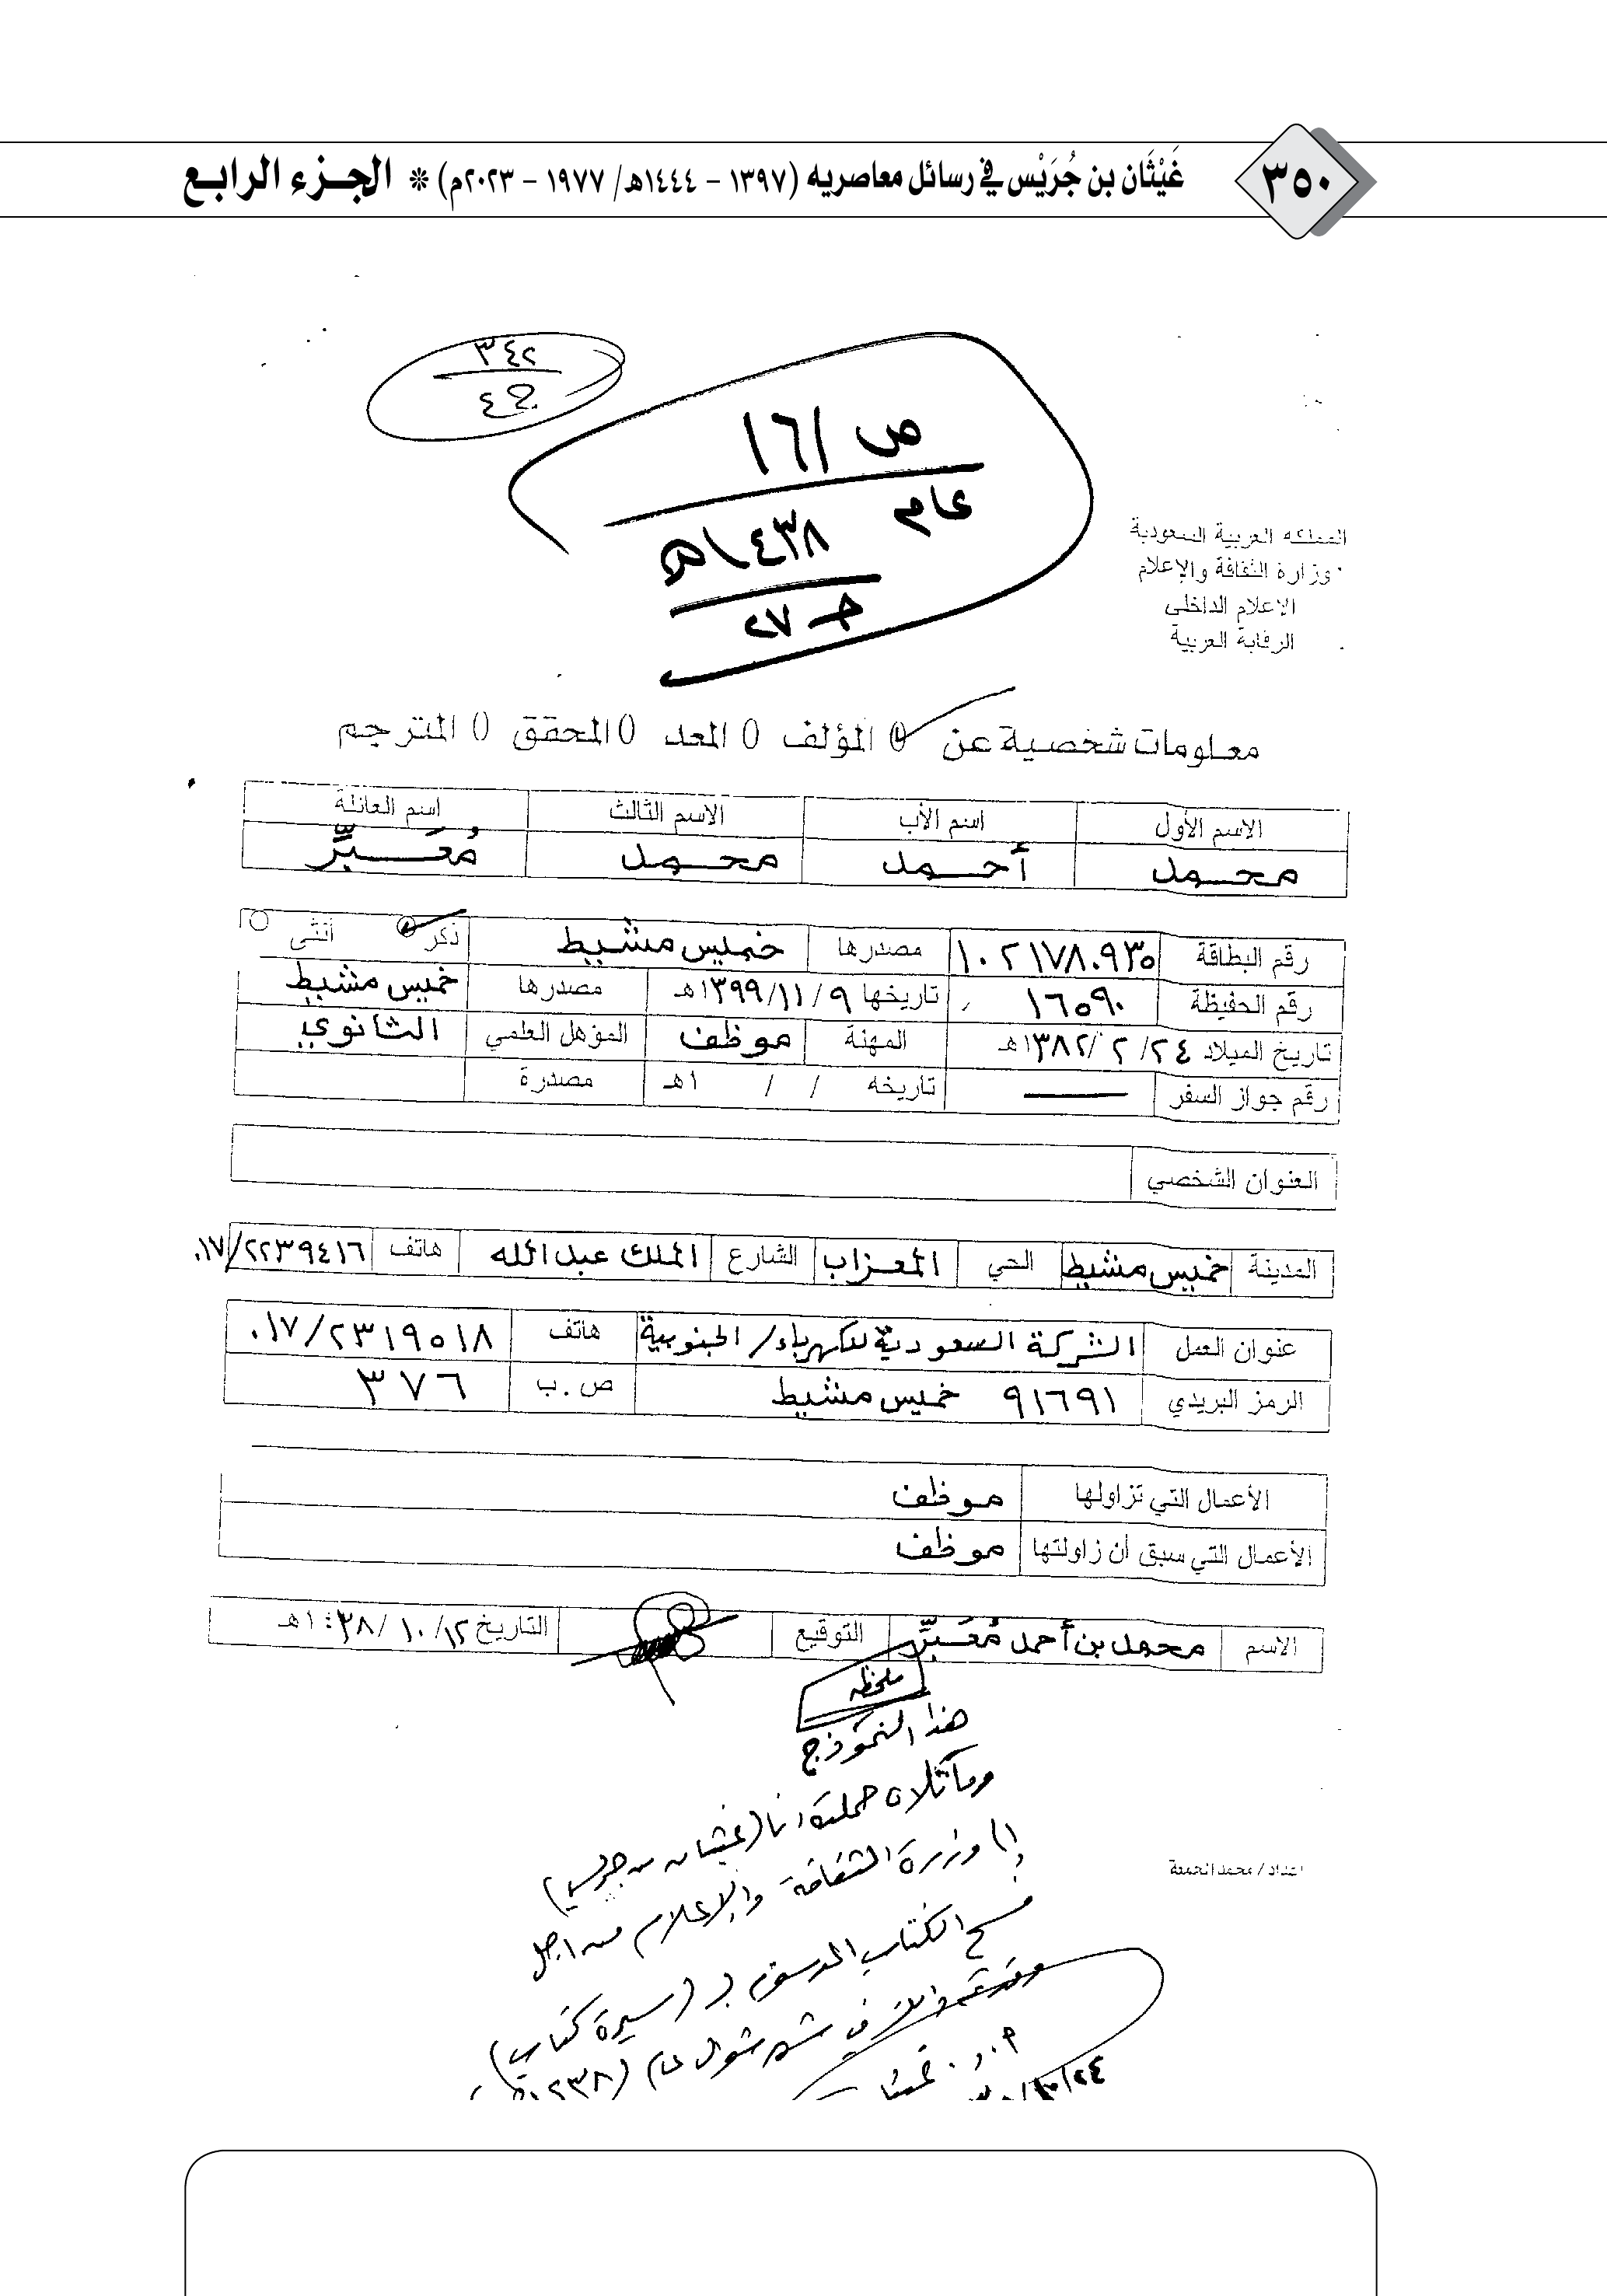 ٣٥٠
غَيْثَان بن جُرَيْس في رسائل معاصريه (١٣٩٧ - ١٤٤٤هـ/ ١٩٧٧ - ٢٠٢٣م) * الجزء الرابع
٣٤٢
ص ١٦١
عام ١٤٣٨هـ
جـ ٢٧
المملكة العربية السعودية
وزارة الثقافة والإعلام
الإعلام الداخلي
الرقابة العربية
معلومات شخصية عن () المؤلف () المعد () المحقق () المترجم
الاسم الأول اسم الأب الاسم الثالث اسم العائلة
محمد أحمد محمد مُعَبِّر
رقم البطاقة ١٠٢١٧٨٠٩٣٥ مصدرها خميس مشيط ذكر أنثى
رقم الحفيظة ١٦٥٩٠ تاريخها ٩/١١/١٣٩٩هـ مصدرها خميس مشيط
تاريخ الميلاد ٢٤/٢/١٣٨٢هـ المهنة موظف المؤهل العلمي الثانوي
رقم جواز السفر — تاريخه / / ١هـ مصدرة
العنوان الشخصي
المدينة خميس مشيط الحي المعزاب الشارع الملك عبدالله هاتف ٠١٧/٢٢٣٩٤١٦
عنوان العمل الشركة السعودية للكهرباء/ الجنوبية هاتف ٠١٧/٢٣١٩٥١٨
الرمز البريدي ٩١٦٩١ خميس مشيط ص.ب ٣٧٦
الأعمال التي تزاولها موظف
الأعمال التي سبق أن زاولتها موظف
الاسم محمد بن أحمد مُعَبِّر التوقيع التاريخ ١٢/١٠/١٤٣٨هـ
ملحظه
هذا النموذج
وما تلاه حملته انا (غيثان بن جريس)
إلى وزارة الثقافة والإعلام من اجل
فسح الكتاب الموسوم بـ (سيرة كتاب)
في شهر شوال عام
إعداد / محمد الجمعة